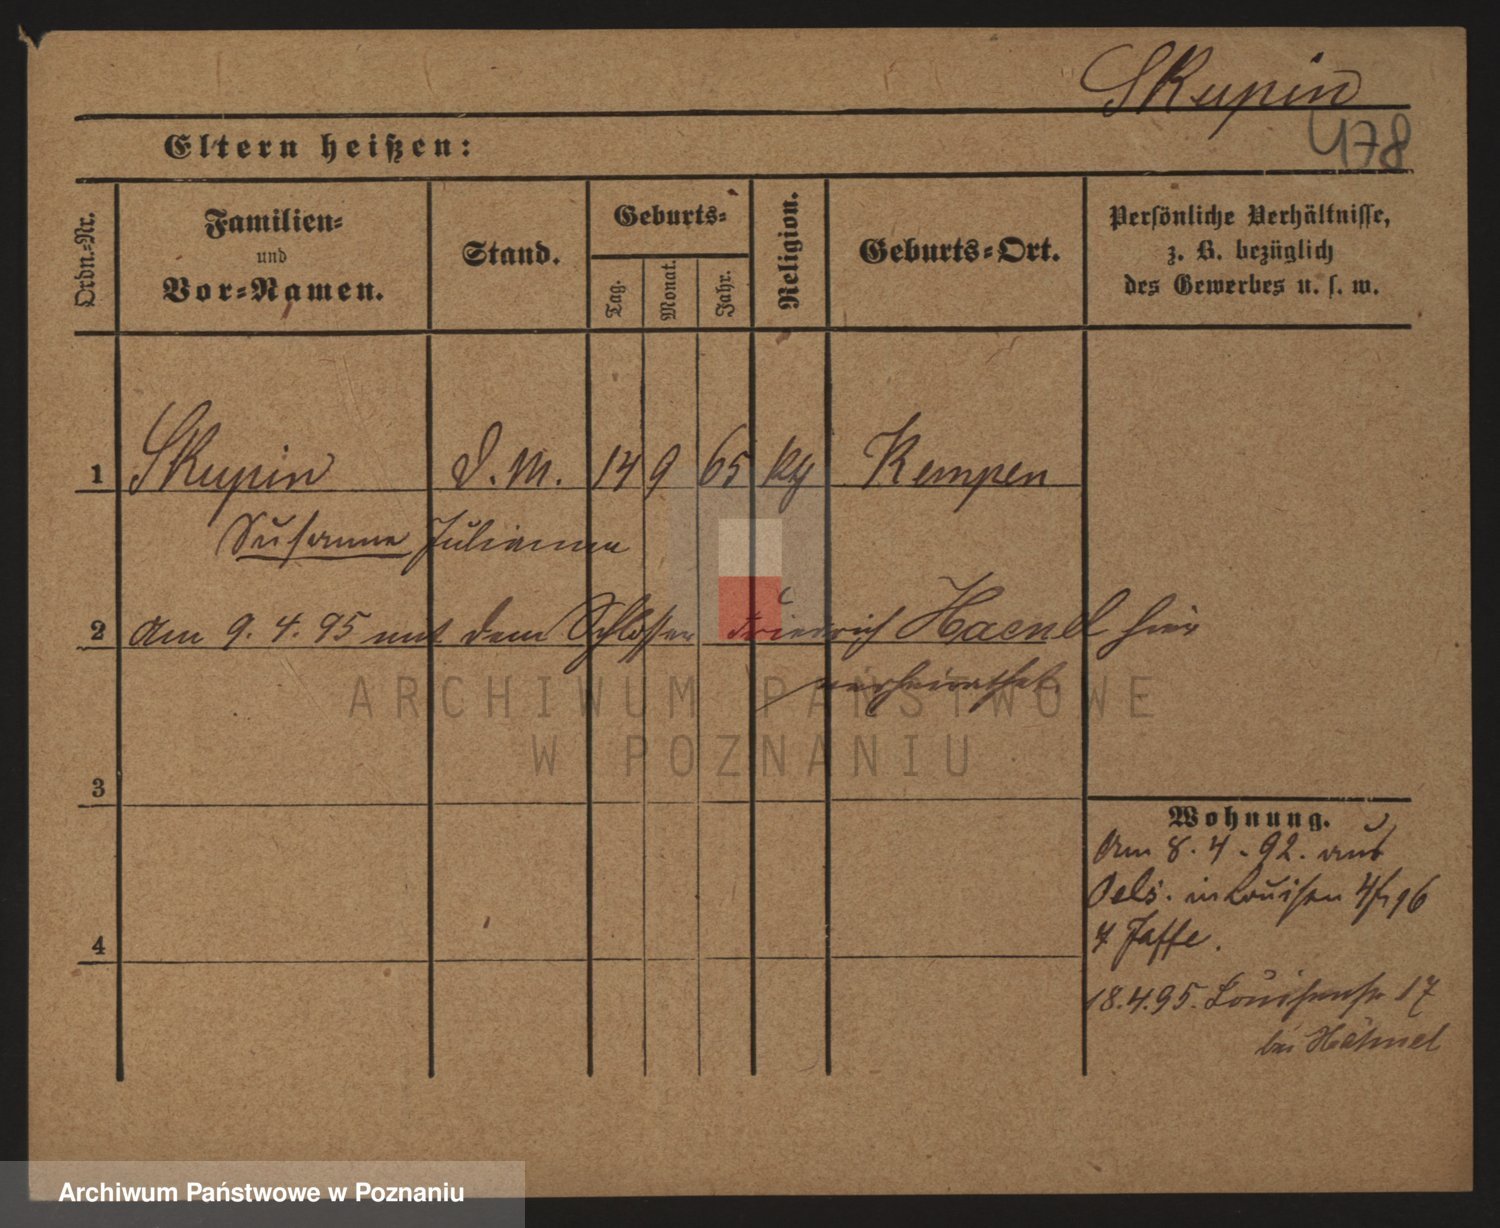 Skupin
478
Eltern heißen:
Ordn.-Nr.
Familien-
und
Vor-Namen.
Stand.
Geburts-
Tag.
Monat.
Jahr.
Religion.
Geburts-Ort.
Persönliche Verhältnisse,
z. B. bezüglich
des Gewerbes u. s. w.
1 Skupin D. M. 14 9 65 Kempen
Susanne Julianna
2 Am 9. 4. 95 mit dem Schlosser Friedrich Haenel hier
verheirathet.
ARCHIWUM PAŃSTWOWE
W POZNANIU
3
4
Wohnung.
Am 8. 4. 92. aus
Oels. in Louisen 16
Jaffe.
18.4.95. Louisenstr 17
bei Hähnel
Archiwum Państwowe w Poznaniu